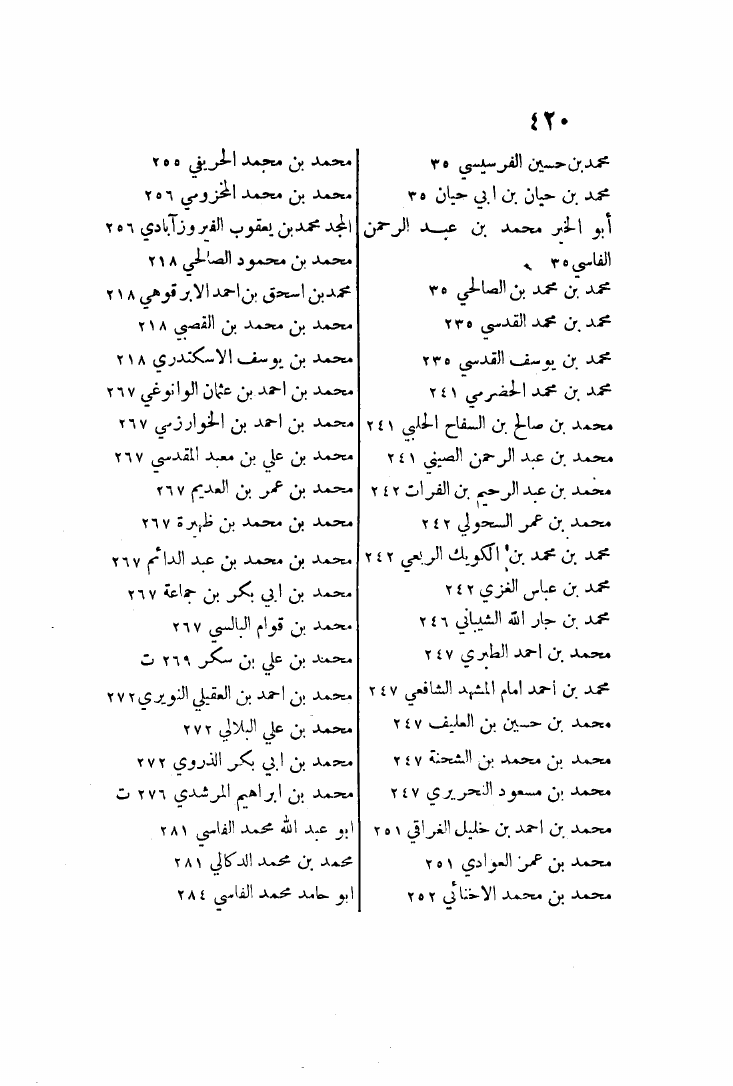 ٤٢٠
محمد بن حسين الفرسيسي ٣٥
محمد بن حيان بن ابي حيان ٣٥
أبو الخير محمد بن عبد الرحمن
الفاسي ٣٥
محمد بن محمد بن الصالحي ٣٥
محمد بن محمد القدسي ٢٣٥
محمد بن يوسف القدسي ٢٣٥
محمد بن محمد الحضرمي ٢٤١
محمد بن صالح بن السفاح الحلبي ٢٤١
محمد بن عبد الرحمن الصيني ٢٤١
محمد بن عبد الرحيم بن الفرات ٢٤٢
محمد بن عمر السحولي ٢٤٢
محمد بن محمد بن الكويك الربعي ٢٤٢
محمد بن عباس الغزي ٢٤٢
محمد بن جار الله الشيباني ٢٤٦
محمد بن احمد الطبري ٢٤٧
محمد بن أحمد امام المشهد الشافعي ٢٤٧
محمد بن حسين بن العليف ٢٤٧
محمد بن محمد بن الشحنة ٢٤٧
محمد بن مسعود النحريري ٢٤٧
محمد بن احمد بن خليل الغراقي ٢٥١
محمد بن عمر العوادي ٢٥١
محمد بن محمد الاخنائي ٢٥٢
محمد بن محمد الحريفي ٢٥٥
محمد بن محمد المخزومي ٢٥٦
المجد محمد بن يعقوب الفيروزآبادي ٢٥٦
محمد بن محمود الصالحي ٢١٨
محمد بن اسحق بن احمد الابرقوهي ٢١٨
محمد بن محمد بن القصبي ٢١٨
محمد بن يوسف الاسكندري ٢١٨
محمد بن احمد بن عثمان الوانوغي ٢٦٧
محمد بن احمد بن الخوارزمي ٢٦٧
محمد بن علي بن معبد المقدسي ٢٦٧
محمد بن عمر بن العديم ٢٦٧
محمد بن محمد بن ظهيرة ٢٦٧
محمد بن محمد بن عبد الدائم ٢٦٧
محمد بن ابي بكر بن جماعة ٢٦٧
محمد بن قوام البالسي ٢٦٧
محمد بن علي بن سكر ٢٦٩ ت
محمد بن احمد بن العقيلي النويري ٢٧٢
محمد بن علي البلالي ٢٧٢
محمد بن ابي بكر الذروي ٢٧٢
محمد بن ابراهيم المرشدي ٢٧٦ ت
ابو عبد الله محمد الفاسي ٢٨١
محمد بن محمد الدكالي ٢٨١
ابو حامد محمد الفاسي ٢٨٤